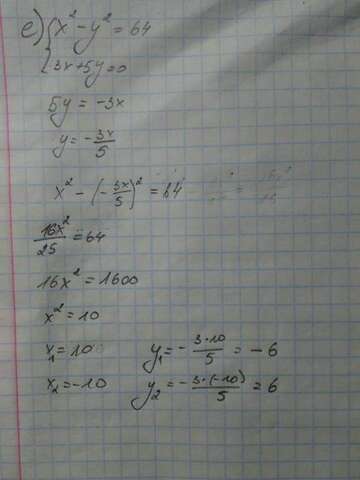 e) { x² - y² = 64
3x + 5y = 0
5y = -3x
y = - 3x/5
x² - (- 3x/5)² = 64
16x²/25 = 64
16x² = 1600
x² = 10
x₁ = 10 y₁ = - 3·10/5 = -6
x₂ = -10 y₂ = - 3·(-10)/5 = 6